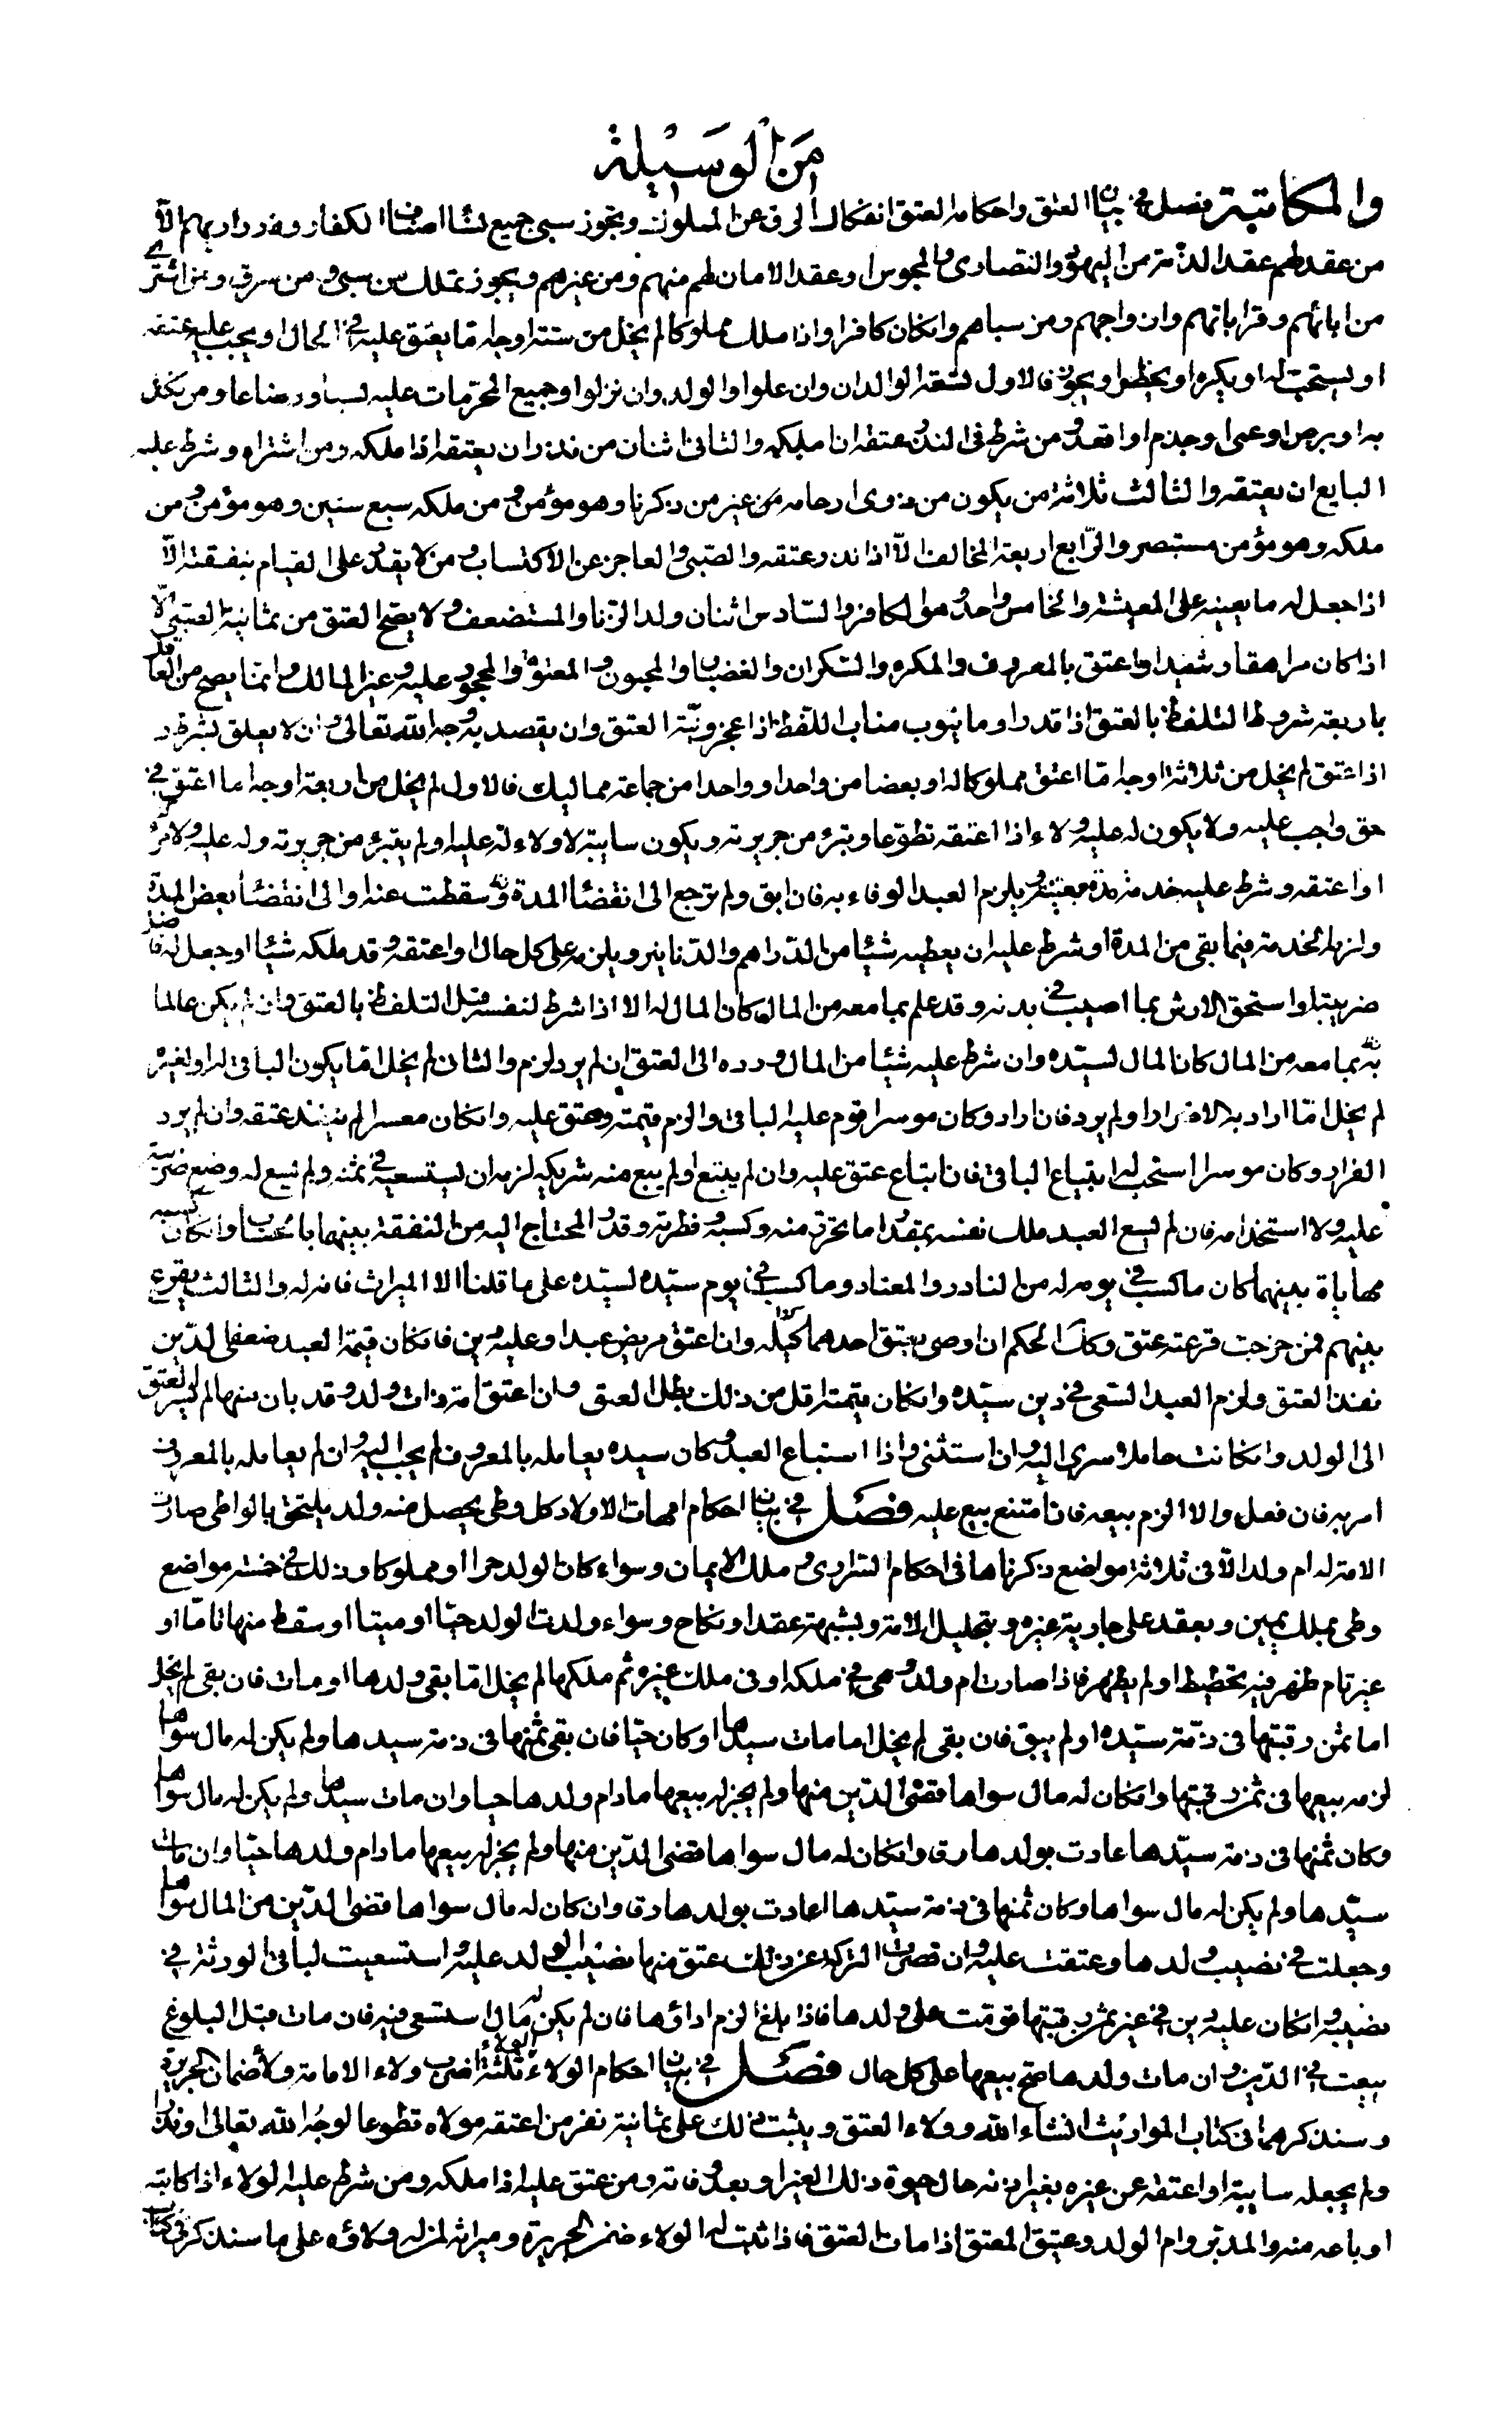 من الوسيلة
والمكاتبة فصل في بيان العتق واحكامه العتق انفكاك الرق عن المملوك ويجوز سبي جميع نساء اصناف الكفار وذراريهم الا
من عقد لهم عقد الذمة من اليهود والنصارى والمجوس او عقد الامان لهم منهم ومن غيرهم ويجوز تملك من سبي ومن سرق ومن اشترى
من ابائهم وقراباتهم وازواجهم ومن سباهم وان كان كافرا واذا ملك مملوكا لم يخل من ستة اوجه اما يعتق عليه في الحال او يجب عليه عتقه
او يستحب له او يكره او يحظر او يجوز فالاول تسعة الوالدان وان علوا والولد وان نزلوا وجميع المحرمات عليه نسبا ورضاعا ومن نكل
به او برص او عمى او جذم او اقعد ومن شرط في النذر عتقه ان ملكه والثاني اثنان من نذر ان يعتقه اذا ملكه ومن اشتراه وشرط عليه
البايع ان يعتقه والثالث ثلاثة من يكون من ذوى ارحامه من غير من ذكرنا وهو مؤمن ومن ملكه سبع سنين وهو مؤمن ومن
ملكه وهو مؤمن مستبصر والرابع اربعة المخالف الا اذا نذر عتقه والصبي والعاجز عن الاكتساب ومن لا يقدر على القيام بنفقته الا
اذا جعل له ما يعينه على المعيشة والخامس واحد وهو الكافر والسادس اثنان ولد الزنا والمستضعف ولا يصح العتق من ثمانية الصبي الا
اذا كان مراهقا رشيدا واعتق بالمعروف والمكره والسكران والغضبان والمجنون والمعتوه والمحجور عليه وغير المالك وانما يصح من العاقل
باربعة شروط التلفظ بالعتق اذا قدر او ما ينوب مناب اللفظ اذا عجز ونية العتق وان يقصد به وجه الله تعالى وان لا يعلق بشرط و
اذا عتق لم يخل من ثلاثة اوجه اما اعتق مملوكا له او بعضا من واحد او واحدا من جماعة مماليك فالاول لم يخل من اربعة اوجه اما اعتق في
حق واجب عليه ولا يكون له عليه ولاء اذا اعتقه تطوعا وتبرء من جريرته ويكون سايبة لا ولاء له عليه او لم يتبرء من جريرته وله عليه ولاؤه
او اعتقه وشرط عليه خدمة مدة معينة ويلزم العبد الوفاء به فان ابق ولم يرجع الى انقضاء المدة سقطت عنه او الى انقضاء بعض المدة
ولزمه الخدمة فيما بقى من المدة او شرط عليه ان يعطيه شيئا من الدراهم والدنانير ويلزمه على كل حال او اعتقه وقد ملكه شيئا او جعل له فاضل
ضريبة او استحق الارش بما اصيب في بدنه وقد علم بما معه من المال كان المال له الا اذا شرط لنفسه قبل التلفظ بالعتق وان لم يكن عالما
بما معه من المال كان المال لسيده وان شرط عليه شيئا من المال ورده الى العتق ان لم يرد لزم والثاني لم يخل اما يكون الباقي له او لغيره
لم يخل اما اراد به الاضرار او لم يرد فان اراد وكان موسرا قوم عليه الباقي والزم قيمته وعتق عليه وان كان معسرا لم ينفذ عتقه وان لم يرد
الضرار وكان موسرا استحب له ابتياع الباقي فان ابتاع عتق عليه وان لم يبتع او لم يبع منه شريكه لزمه ان يستسعيه في ثمنه ولم يسع له وضع ضريبة
عليه ولا استخدامه فان لم يسع العبد ملك نفسه بمقدار ما تحرر منه وكسبه وفطرته وقدر المحتاج اليه من النفقة بينهما بالحساب وان كان
مهاياة بينهما كان ما كسب في يومه له من النادر والمعتاد وما كسب في يوم سيده لسيده على ما قلنا الا الميراث فانه له والثالث يقرع
بينهم فمن خرجت قرعته عتق وكذلك الحكم ان اوصى بعتق احدهما وان اعتق مريض عبدا وعليه دين فان كان قيمة العبد ضعفي الدين
نفذ العتق ولزم العبد السعي في دين سيده وان كان قيمته اقل من ذلك بطل العتق وان اعتق امة ذات ولد وقد بان منها لم يسر العتق
الى الولد وان كانت حاملا سرى اليه وان استثنى واذا استباع العبد وكان سيده يعامله بالمعروف لم يجب اليه وان لم يعامله بالمعروف
امر به فان فعل والا الزم بيعه فان امتنع بيع عليه فصل في بيان احكام امهات الاولاد كل وطى يحصل منه ولد يلتحق بالواطى صارت
الامة له ام ولد الا في ثلاثة مواضع ذكرناها في احكام السراري وملك الايمان وسواء كان الولد حرا او مملوكا وذلك في خمسة مواضع
وطى بملك يمين وبعقد على جارية غيره وبتحليل الامة وبشبهة عقد او نكاح وسواء ولدت الولد حيا او ميتا او سقط منها تاما او
غير تام ظهر فيه تخطيط او لم يظهر فاذا صارت ام ولد وهي في ملكه او في ملك غيره ثم ملكها لم يخل اما بقى ولدها او مات فان بقى لم يخل
اما ثمن رقبتها في ذمة سيده او لم يبق فان بقى لم يخل اما مات سيدها او كان حيا فان بقى ثمنها في ذمة سيدها ولم يكن له مال سواها
لزمه بيعها في ثمن رقبتها وان كان له مال سواها قضى الدين منها ولم يجز له بيعها ما دام ولدها حيا وان مات سيدها ولم يكن له مال سواها
وكان ثمنها في ذمة سيدها عادت بولدها رقا وان كان له مال سواها قضى الدين منها ولم يجز له بيعها ما دام ولدها حيا وان مات
سيدها ولم يكن له مال سواها وكان ثمنها في ذمة سيدها اعادت بولدها رقا وان كان له مال سواها قضى الدين من المال سواها
وجعلت في نصيب ولدها وعتقت عليه وان قصرت التركة عن ذلك عتق منها نصيب الولد عليه واستسعيت لباقي الورثة في
نصيبه وان كان عليه دين في غير ثمن رقبتها قومت على ولدها فاذا بلغ الزم اداؤها فان لم يكن له مال استسعى فيه فان مات قبل البلوغ
بيعت في الدين وان مات ولدها صح بيعها على كل حال فصل في بيان احكام الولاء الولاء ثلثة اضرب ولاء الامامة ولاء ضمان الجريرة
وسنذكرهما في كتاب المواريث انشاء الله وولاء العتق ويثبت ذلك على ثمانية نفر من اعتقه مولاه تطوعا لوجه الله تعالى او نذرا
ولم يجعله سايبة او اعتقه عن غيره بغير اذنه حال حيوة ذلك الغير او بعد وفاته ومن عتق عليه اذا ملكه ومن شرط عليه الولاء اذا كاتبه
او باعه منه والمدبر وام الولد وعتيق المعتق اذا مات المعتق فاذا ثبت له الولاء ضمن الجريرة وميراثه لمن له ولاؤه على ما سنذكر في كتاب